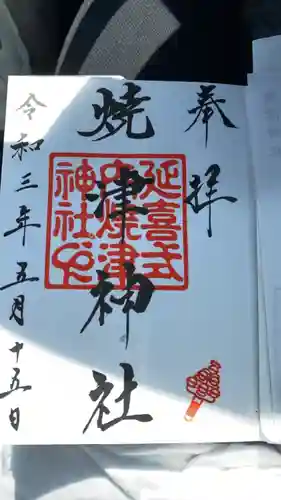 奉拝
焼津神社
延喜式
内焼津
神社之
令和三年五月十五日